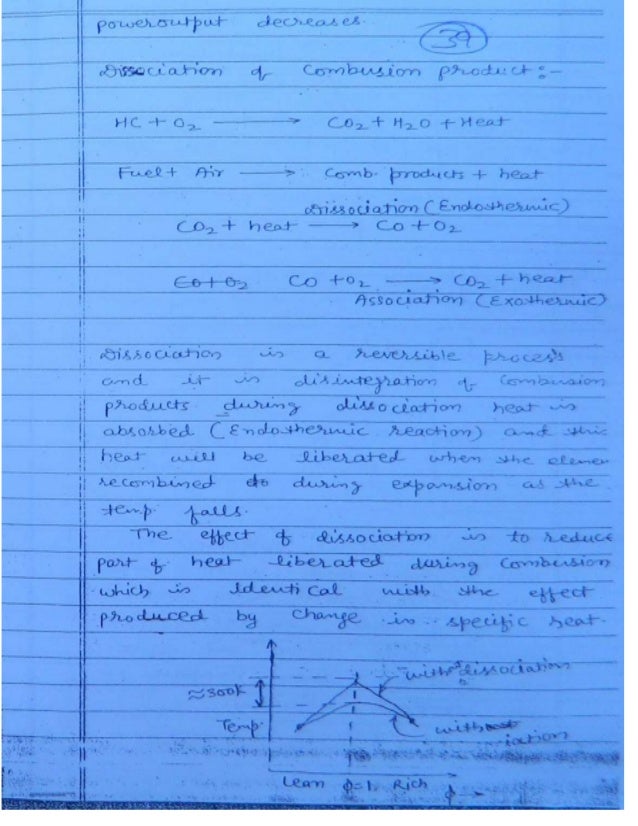 poweroutput decreases.
39
Dissociation of Combusion product:-
HC + O2 → CO2 + H2O + Heat
Fuel + Air → Comb. products + heat
Dissociation (Endothermic)
CO2 + heat → Co + O2
Co + O2 CO + O2 → CO2 + heat
Association (Exothermic)
Dissociation is a reversible process
and it is disintegration of Combusion
products during dissociation heat is
absorbed (Endothermic reaction) and this
heat will be liberated when the elemen
recombined do during expansion as the
temp. falls.
The effect of dissociation is to reduce
part of heat liberated during Combusion
which is Identical with the effect
produced by change in specific heat.
without dissociation
≈300K
Temp.
with
iation
Lean ϕ=1 Rich ϕ